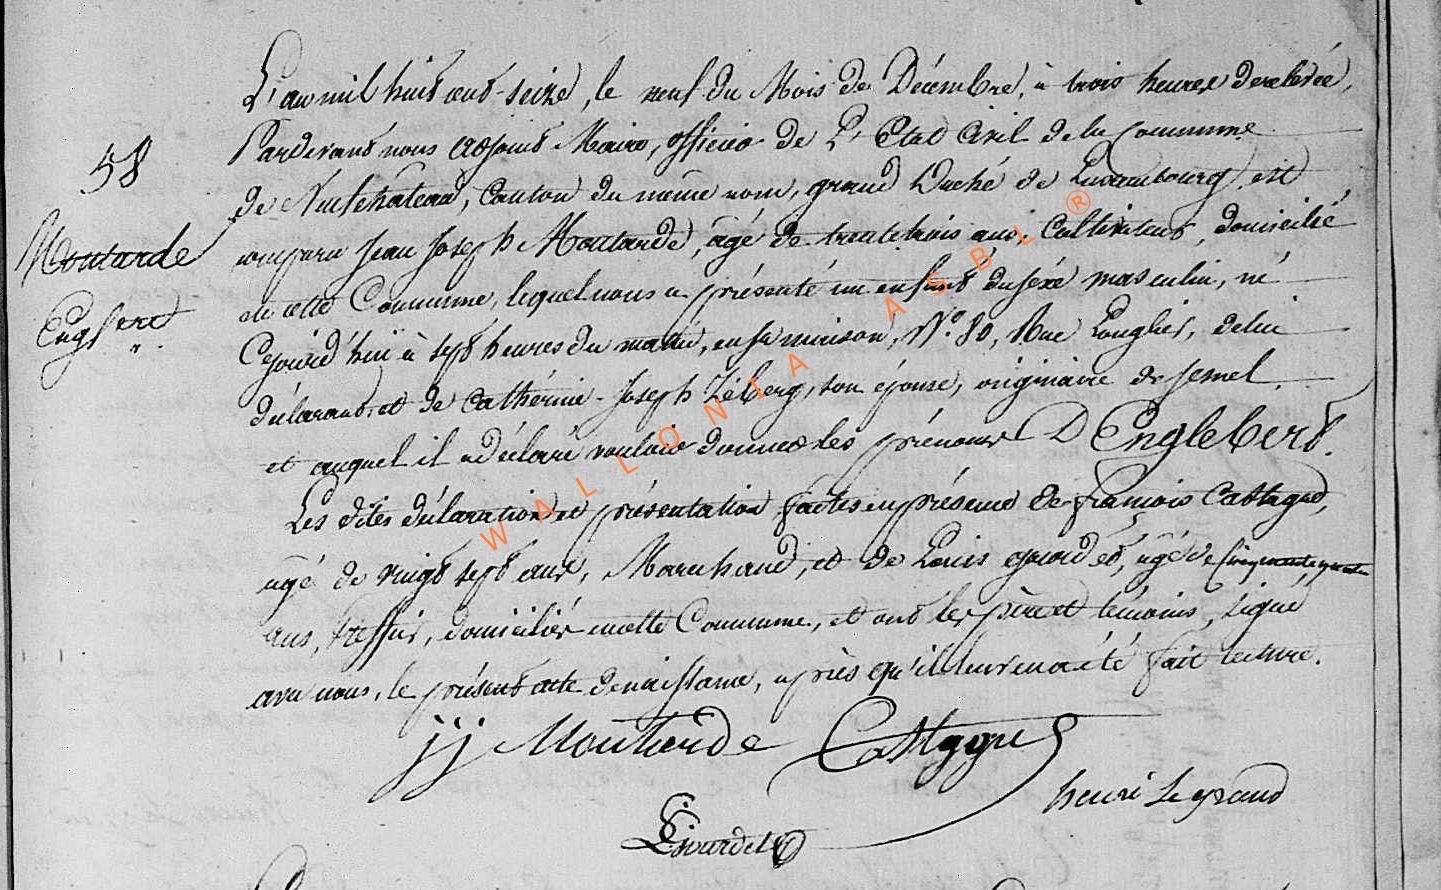 58
Moutarde
Englbert
L'an mil huit cent-seize, le neuf du Mois de Décembre, à trois heures de relevée,
Pardevant nous adjoint Maire, officier de L'Etat Civil de la Commune
de Neufchâteau, Canton du même nom, grand Duché de Luxembourg, est
comparu Jean Joseph Moutarde, âgé de trente trois ans, Cultivateur, domicilié
de cette Commune, lequel nous a présenté un enfant du séxe masculin, né
Cejourd'hui à sept heures du matin, en sa maison, N.º 80, Rue Longlier, de lui
déclarant, et de Cathérine-Joseph Zéberg, son épouse, originaire de Jemel.
et auquel il a déclaré vouloir donner les prénoms D'Englebert.
Les dites déclaration et présentation faites en présence de françois Castagne,
agé de vingt sept ans, Marchand, et de Louis gourdet, agé de Cinquante quatre
ans, greffier, domiciliés en cette Commune, et ont les père et témoins, signé
avec nous, le présent acte de naissance, après qu'il leur en a été fait lecture.
jj Moutarde Castagne
henri Legrand
L Gourdet
WALLONIA ASBL ®